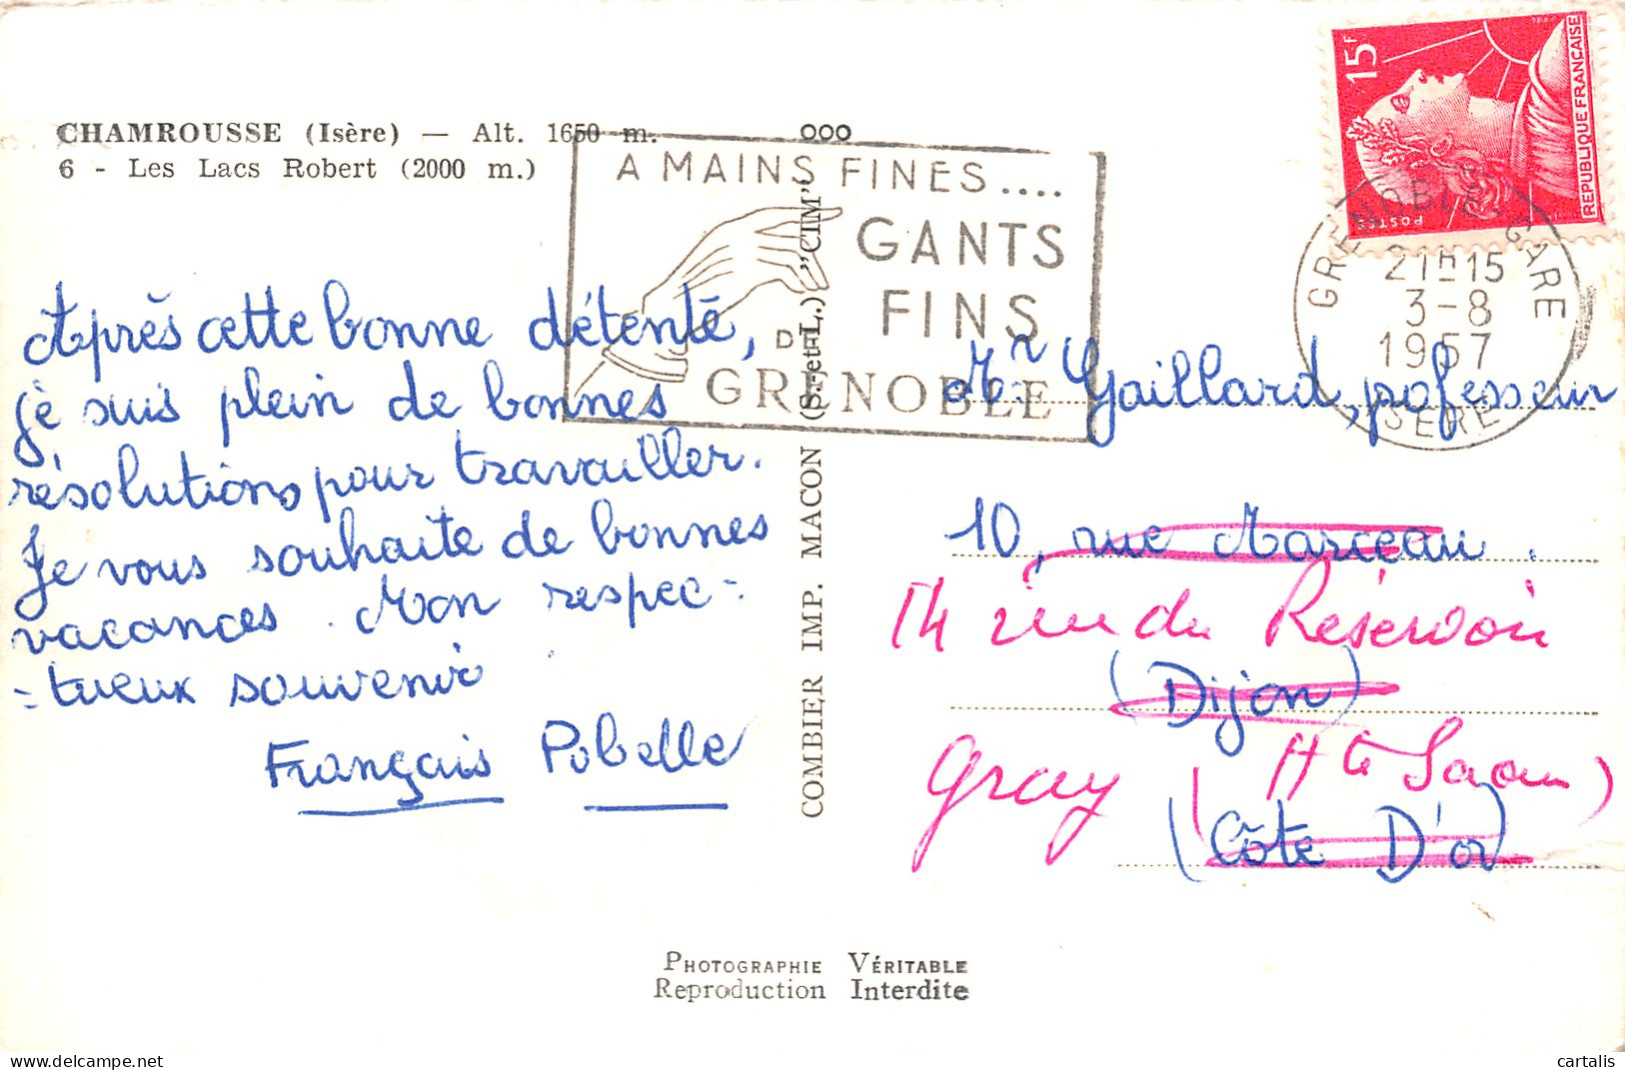 CHAMROUSSE (Isère) — Alt. 1650 m.
6 - Les Lacs Robert (2000 m.)
A MAINS FINES....
GANTS
FINS
DE
GRENOBLE
15F
REPUBLIQUE FRANÇAISE
POSTES
GRENOBLE-GARE
21H15
3-8
1957
ISERE
Après cette bonne détente,
je suis plein de bonnes
résolutions pour travailler.
Je vous souhaite de bonnes
vacances. Mon respec-
-tueux souvenir
Français Pobelle
COMBIER IMP. MACON (S.-et-L.) "CIM"
Mr Gaillard, professeur
10, rue Marceau.
14 rue du Réservoir
(Dijon)
Gray (Hte Saône)
(Côte D'or)
PHOTOGRAPHIE VÉRITABLE
Reproduction Interdite
cartalis